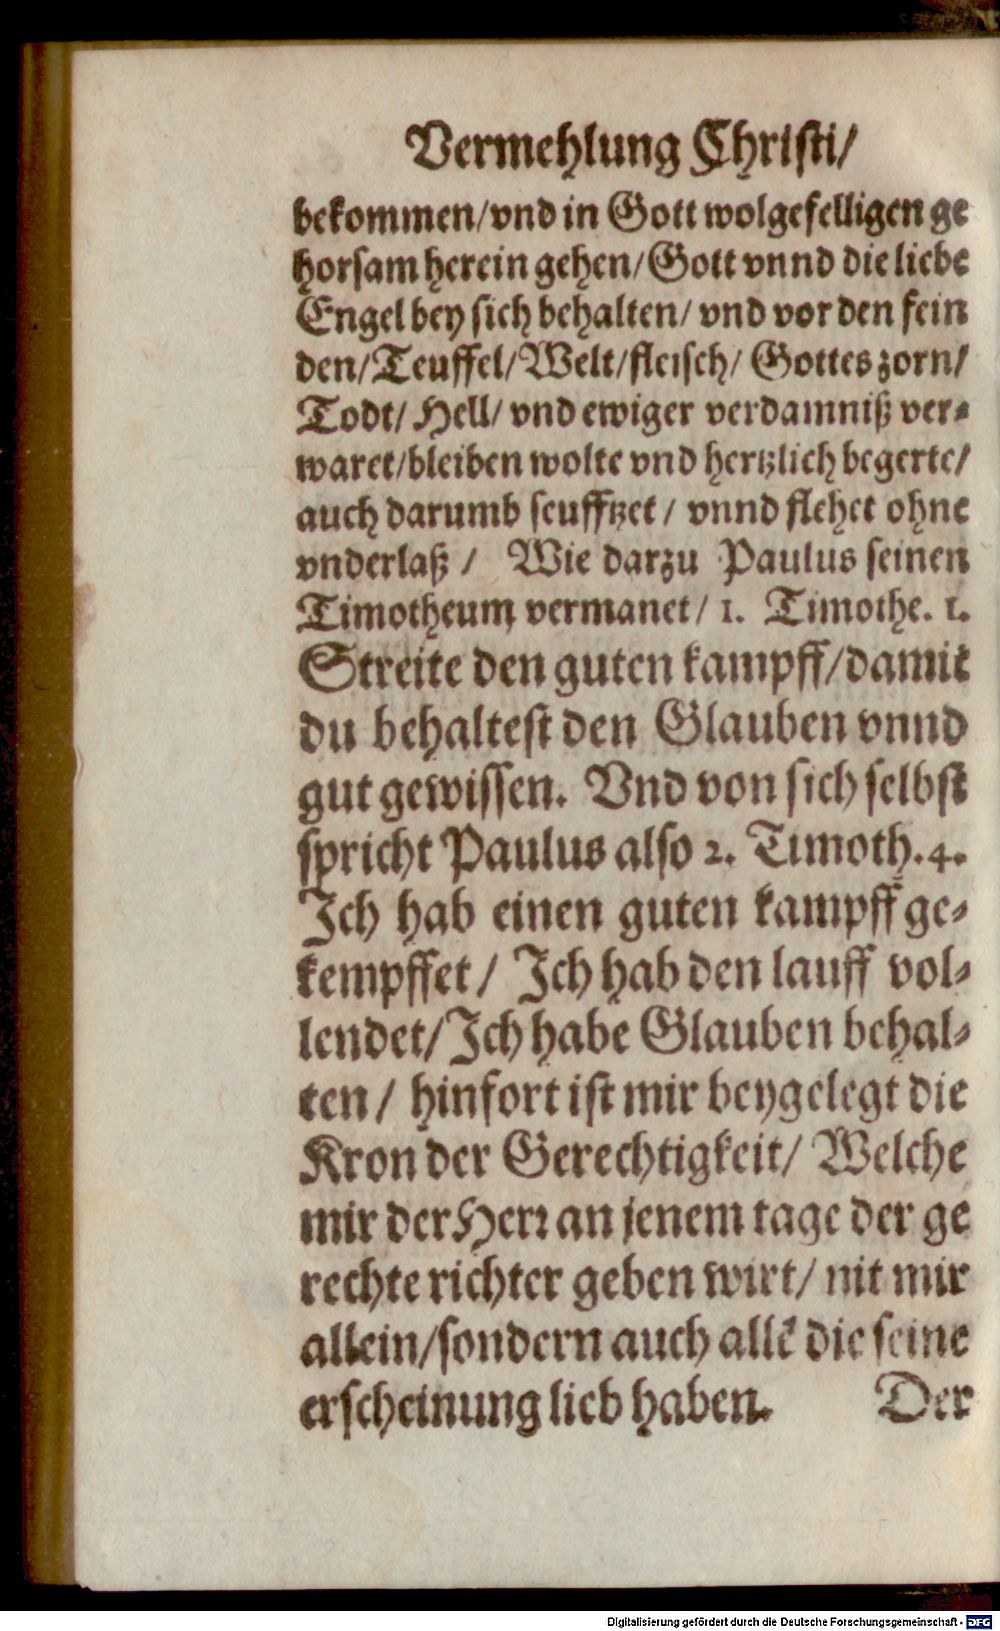 Vermehlung Christi/
bekommen/vnd in Gott wolgefelligen ge
horsam herein gehen/Gott vnnd die liebe
Engel bey sich behalten/ vnd vor den fein
den/Teuffel/Welt/fleisch/ Gottes zorn/
Todt/ Hell/ vnd ewiger verdamniß ver⸗
waret/bleiben wolte vnd hertzlich begerte/
auch darumb seufftzet / vnnd flehet ohne
vnderlaß / Wie darzu Paulus seinen
Timotheum vermanet/ 1. Timothe. 1.
Streite den guten kampff/damit
du behaltest den Glauben vnnd
gut gewissen. Vnd von sich selbst
spricht Paulus also 2. Timoth.4.
Ich hab einen guten kampff ge⸗
kempffet/ Ich hab den lauff vol⸗
lendet/Ich habe Glauben behal⸗
ten/ hinfort ist mir beygelegt die
Kron der Gerechtigkeit/ Welche
mir der Herr an jenem tage der ge
rechte richter geben wirt/ nit mir
allein/sondern auch allẽ die seine
erscheinung lieb haben. Der
Digitalisierung gefördert durch die Deutsche Forschungsgemeinschaft - DFG